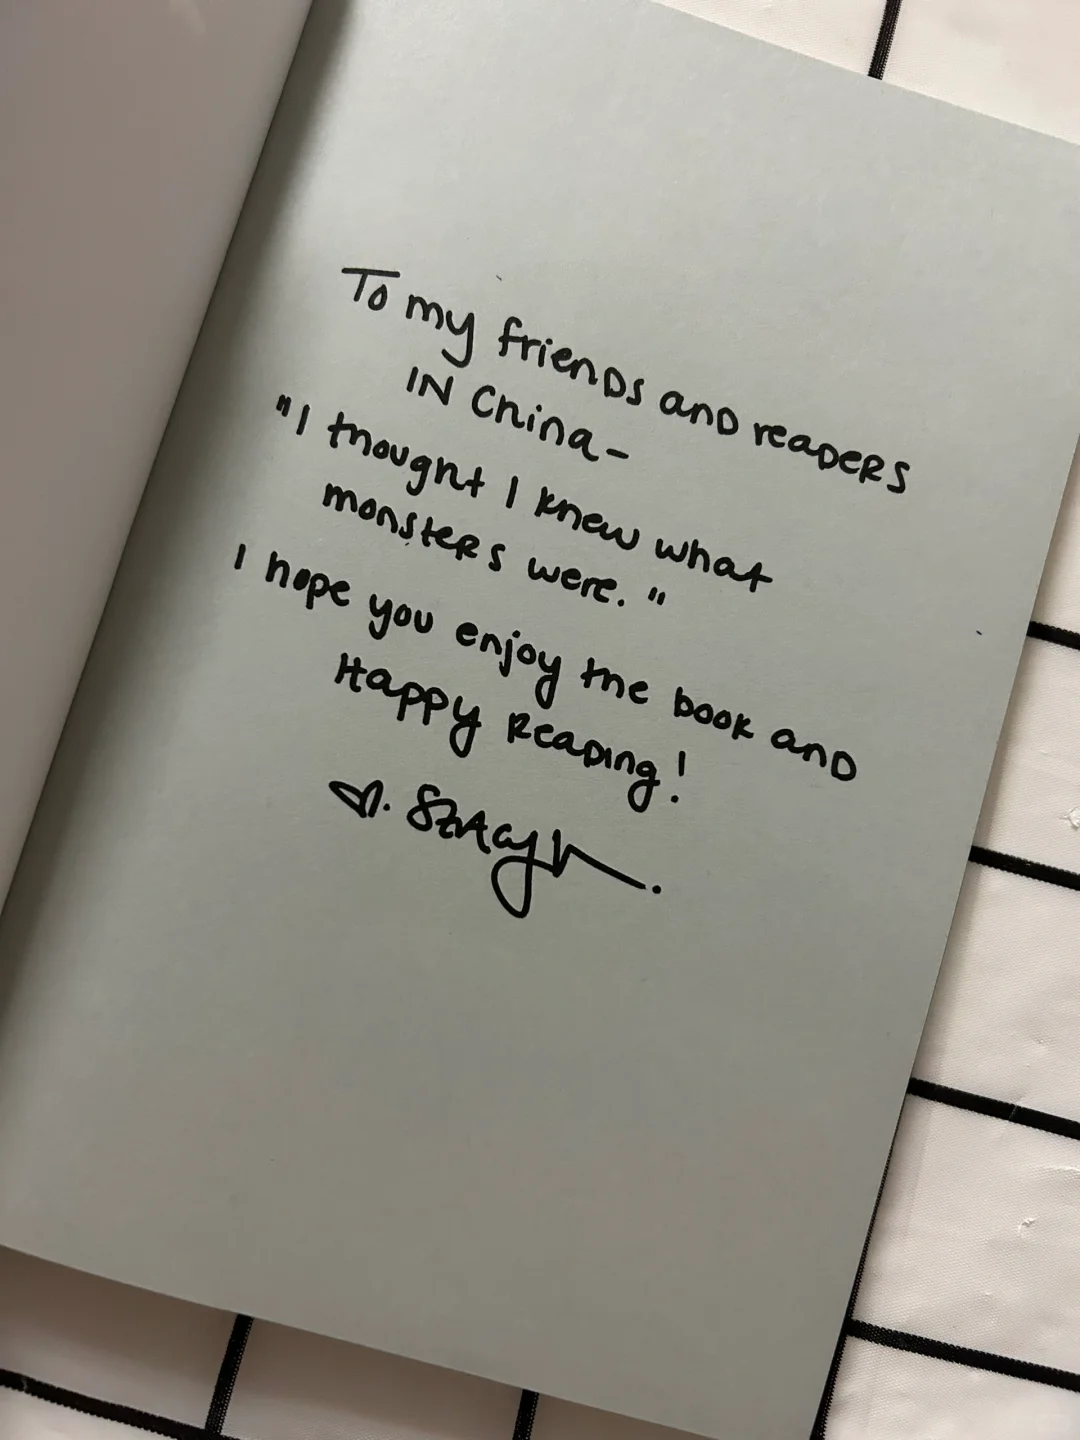 To my friends and readers
IN China-
"I thought I knew what
monsters were."
I hope you enjoy the book and
Happy Reading!